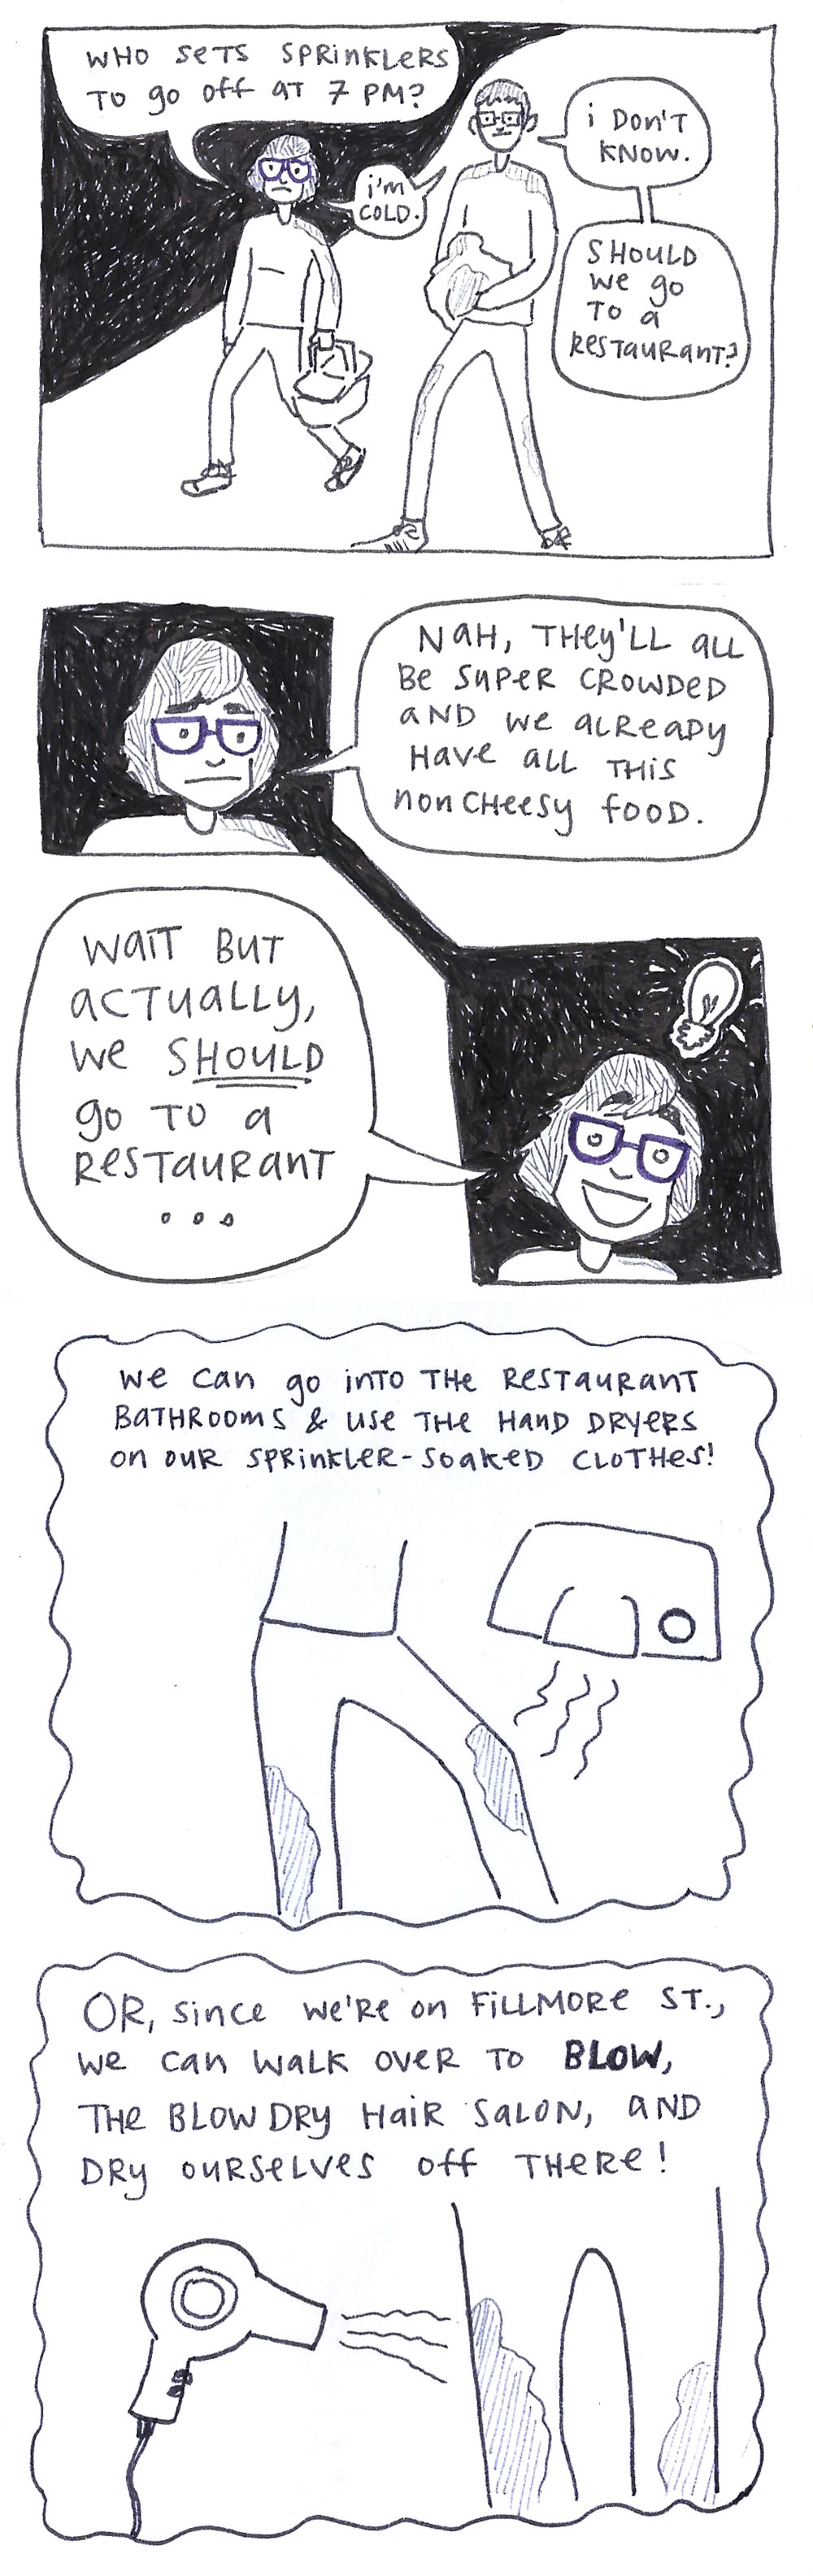 WHO SETS SPRINKLERS
TO go off AT 7 PM?
i'm
COLD.
i DON'T
KNOW.
SHOULD
we go
TO a
RESTAURANT?
NaH, THey'LL aLL
Be SUPER CROWDED
aND we aLReaDy
Have aLL THiS
nonCHeesy fooD.
WaiT BUT
aCTuaLLy,
we SHOULD
go TO a
ResTauranT
...
we can go inTO THe ResTauranT
BaTHROOMS & use THe HanD DRyeRS
on ouR SPRinkLeR-SoakeD CLOTHes!
OR, since we're on FiLLMORe ST.,
we can waLK over TO BLOW,
THe BLOW DRy HaiR SaLON, aND
DRy ourseLves off THeRe!